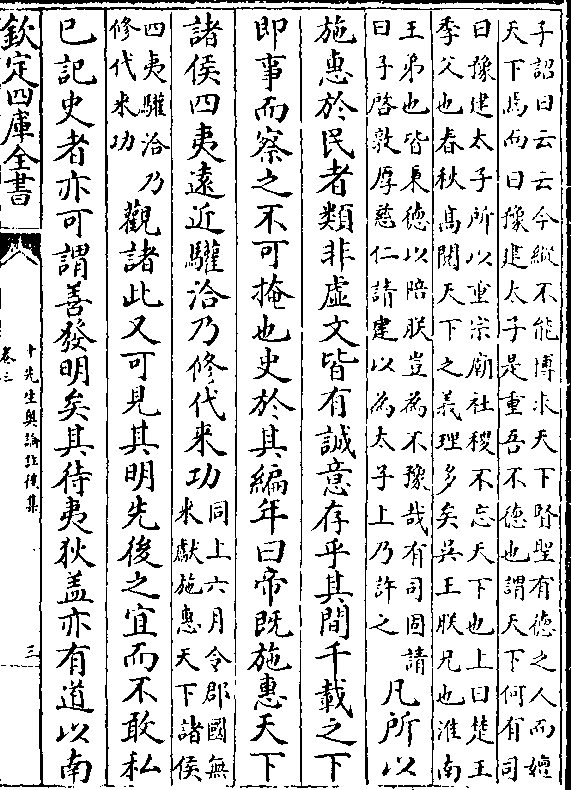 子詔曰云云今縱不能博求天下賢聖有德之人而嬗
天下焉而曰豫建太子是重吾不德也謂天下何有司
曰豫建太子所以重宗廟社稷不忘天下也上曰楚王
季父也春秋髙閱天下之義理多矣吴王朕兄也淮南
王弟也皆秉德以陪朕豈為不豫哉有司固請
曰子啓敦厚慈仁請建以為太子上乃許之
凡所以
施惠於民者類非虚文皆有誠意存乎其間千載之下
即事而察之不可掩也史於其編年曰帝既施惠天下
諸侯四夷遠近驩洽乃修代来功
同上六月令郡國無
来獻施惠天下諸侯
四夷驩洽乃
修代来功
觀諸此又可見其明先後之宜而不敢私
已記史者亦可謂善發明矣其待夷狄盖亦有道以南
欽定四庫全書
十先生奥論註後集
卷三
三